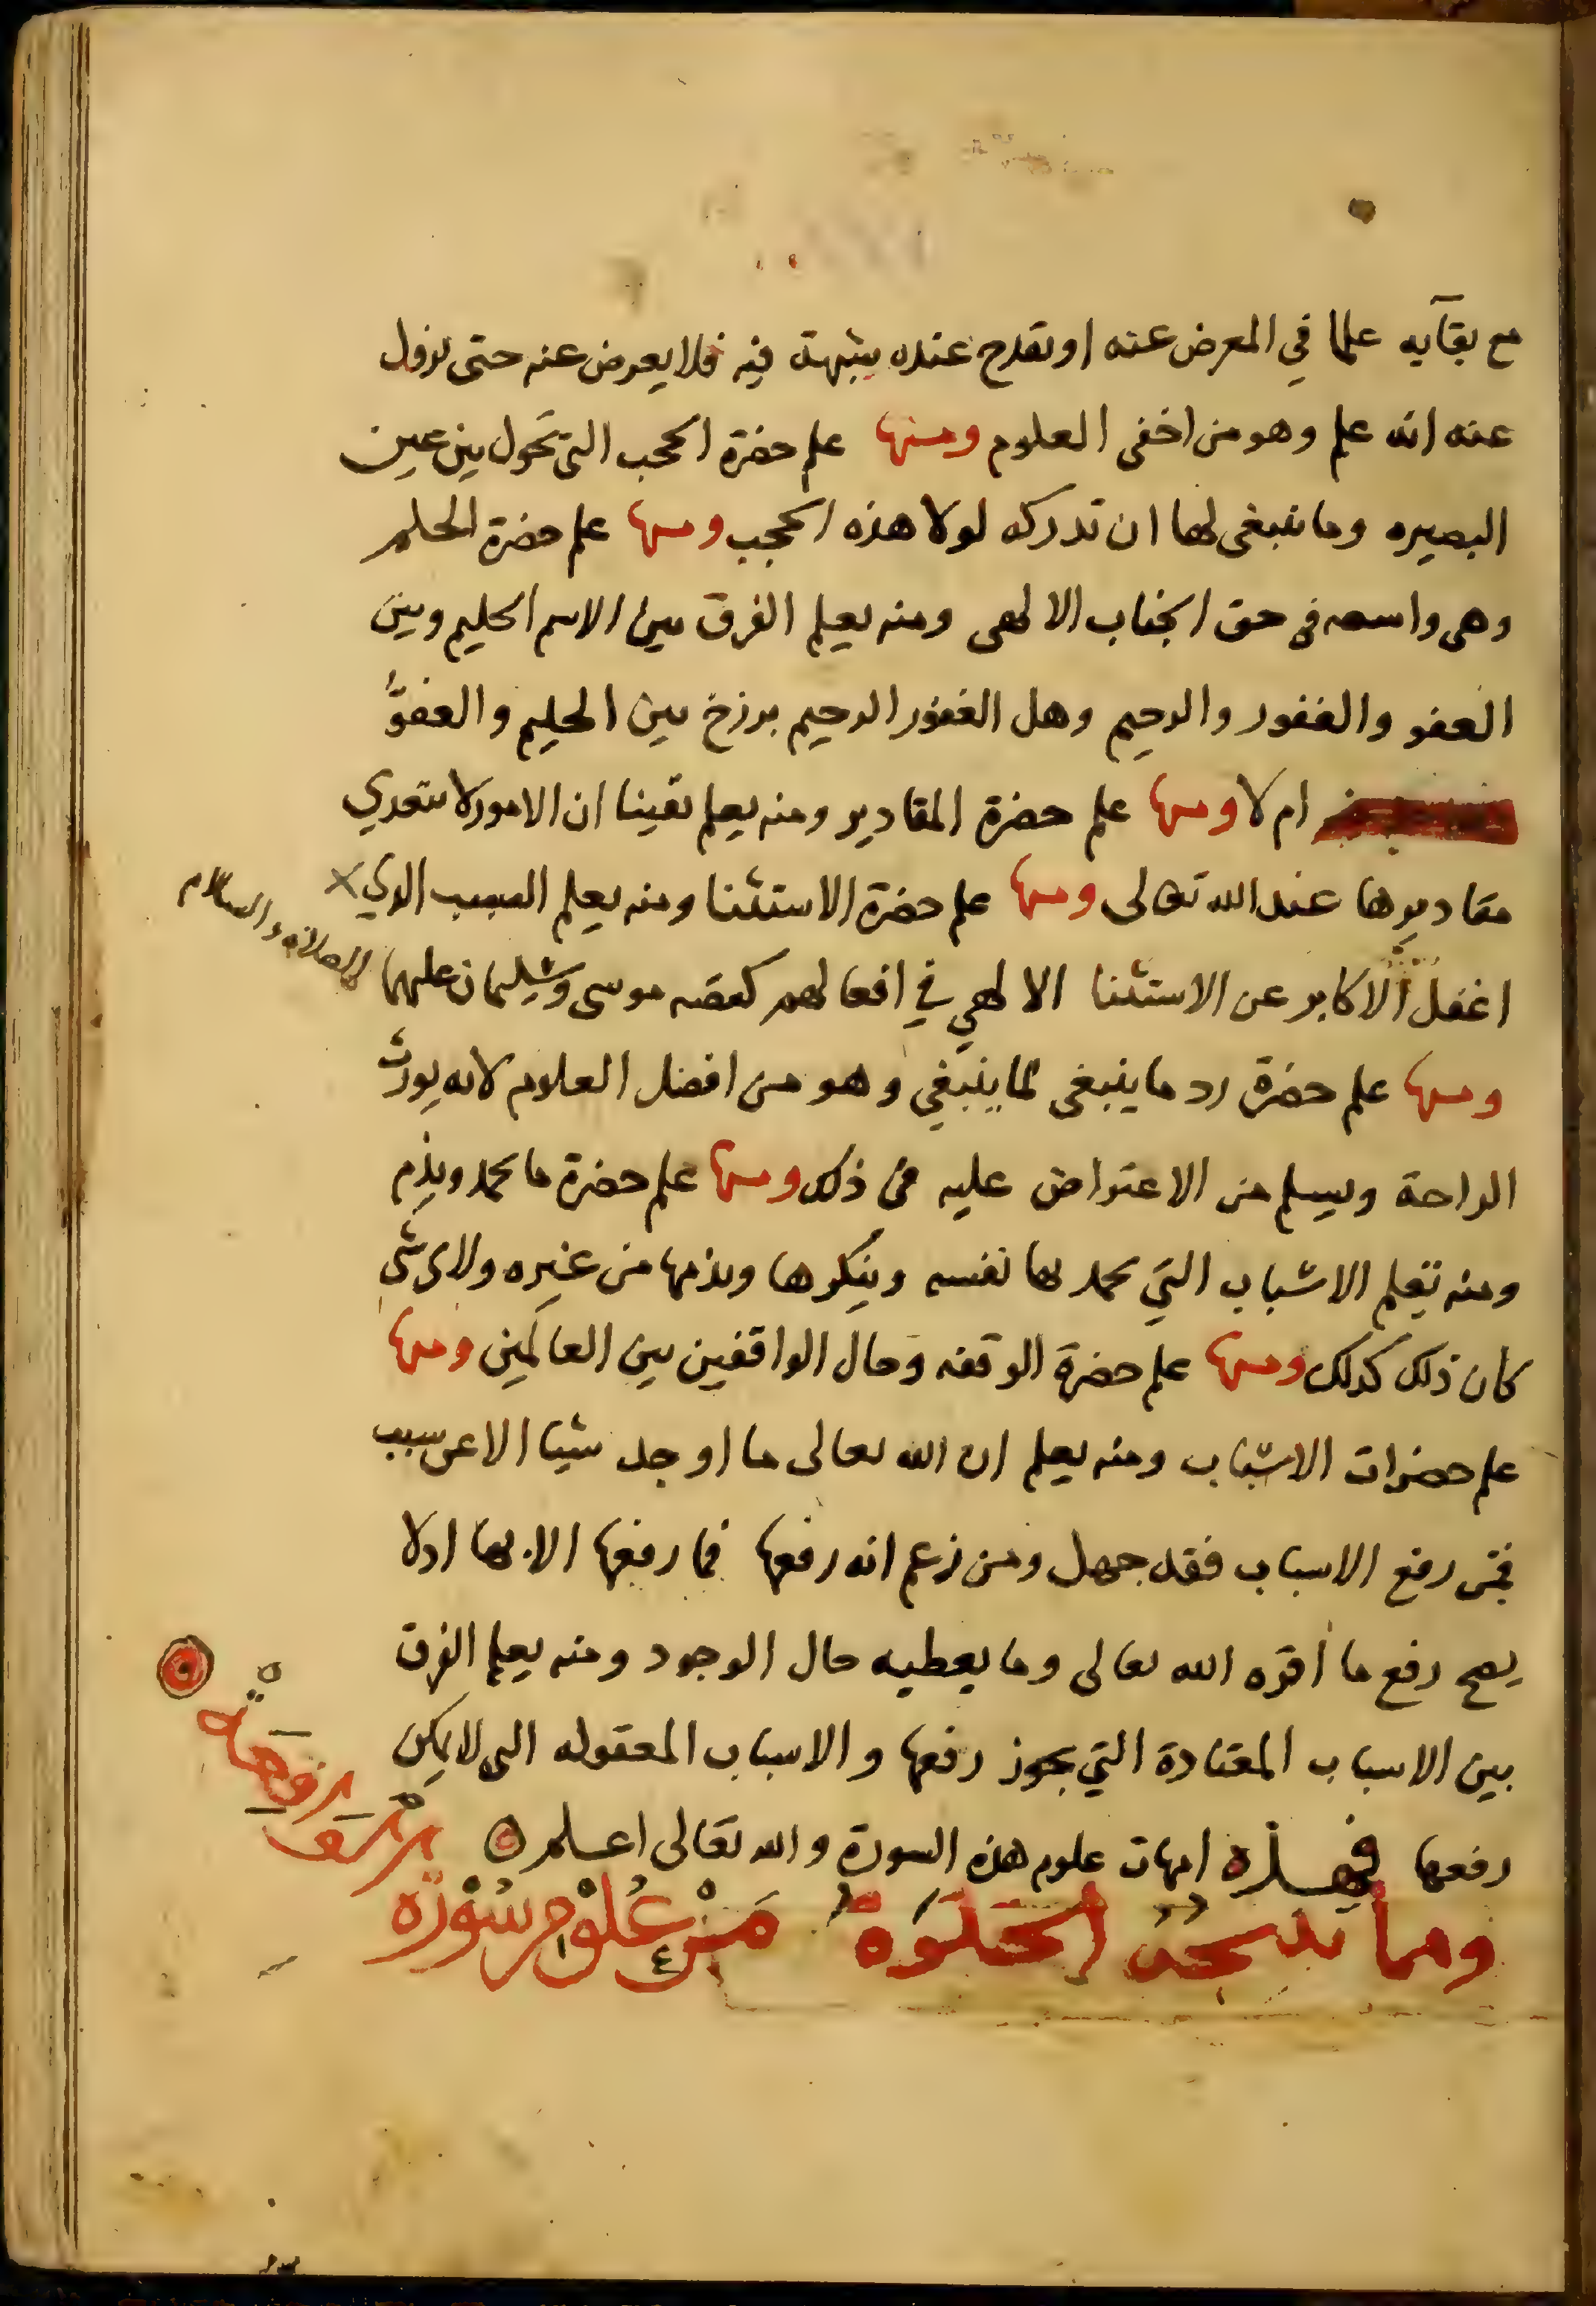 مع بقآيه علما في المعرض عنه او تقدح عنده بشبهة فيه فلا يعرض عنه حتى يزول
عنه انه علم وهو من اخفى العلوم ومنها علم حضرة الحجب التي تحول بين عين
البصيره وما ينبغى لها ان تدركه لولا هذه الحجب ومنها علم حضرة الحلم
وهى واسعه في حق الجناب الالهى ومنه يعلم الفرق بين الاسم الحليم وبين
العفو والغفور والرحيم وهل الغفور الرحيم برزخ بين الحليم والعفوّ
ام لا ومنها علم حضرة المقادير ومنه يعلم يقينا ان الامور لا تتعدي
مقاديرها عند الله تعالى ومنها علم حضرة الاستثنا ومنه يعلم السبب الذي
اغفل الاكابر عن الاستثنا الالهي في افعالهم كقصه موسى وسليمان عليهما الصلاة والسلام
ومنها علم حضرة رد ما ينبغى لما ينبغي وهو من افضل العلوم لانه يورث
الراحة ويسلم من الاعتراض عليه في ذلك ومنها علم حضرة ما يحمد ويذم
ومنه تعلم الاسباب التي يحمد بها نفسه وينكرها ويذمها من غيره ولاى شى
كان ذلك كذلك ومنها علم حضرة الوقفه وحال الواقفين بين العالمين ومنها
علم حضرات الاسباب ومنه يعلم ان الله تعالى ما اوجد شيا الا عن سبب
فمن رفع الاسباب فقد جهل ومن زعم انه رفعها فما رفعها الا بها اذ لا
يصح رفع ما أقره الله تعالى وما يعطيه حال الوجود ومنه يعلم الفرق
بين الاسباب المعتادة التي يجوز رفعها والاسباب المعقوله التى لا يمكن
رفعها فهذه امهات علوم هذه السورة والله تعالى اعلم
ومما تنتجه الخلوة من علوم سورة